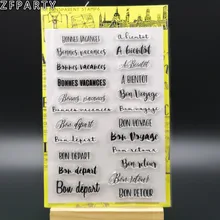 ZFPARTY
BONNES VACANCES
Bonnes vacances
BONNES VACANCES
BONNES VACANCES
Bonnes vacances
Bonnes vacances
Bon départ
Bon départ
BON DÉPART
Bon départ
Bon départ
A bientôt
A bientôt
A Bientôt
A BIENTÔT
Bon Voyage
Bon voyage
BON VOYAGE
Bon Voyage
Bon retour
Bon retour
Bon retour
BON RETOUR